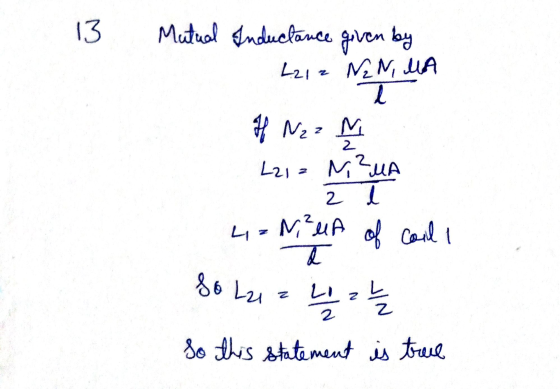 13 Mutual Inductance given by
L21 = N2 N1 μA / l
If N2 = N1 / 2
L21 = N1² μA / 2 l
L1 = N1² μA / l of coil 1
So L21 = L1 / 2 = L / 2
So this statement is true